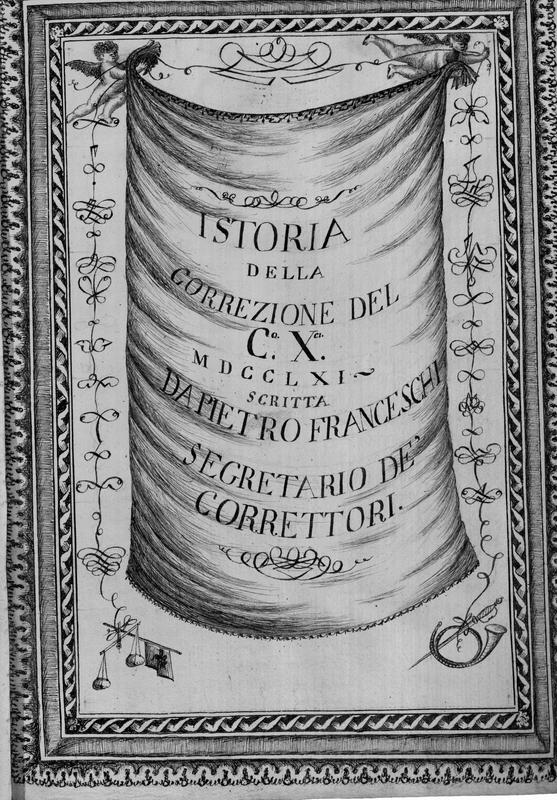 ISTORIA
DELLA
CORREZIONE DEL
C.o X.ci
MDCCLXI~
SCRITTA
DA PIETRO FRANCESCHI
SEGRETARIO DE'
CORRETTORI.